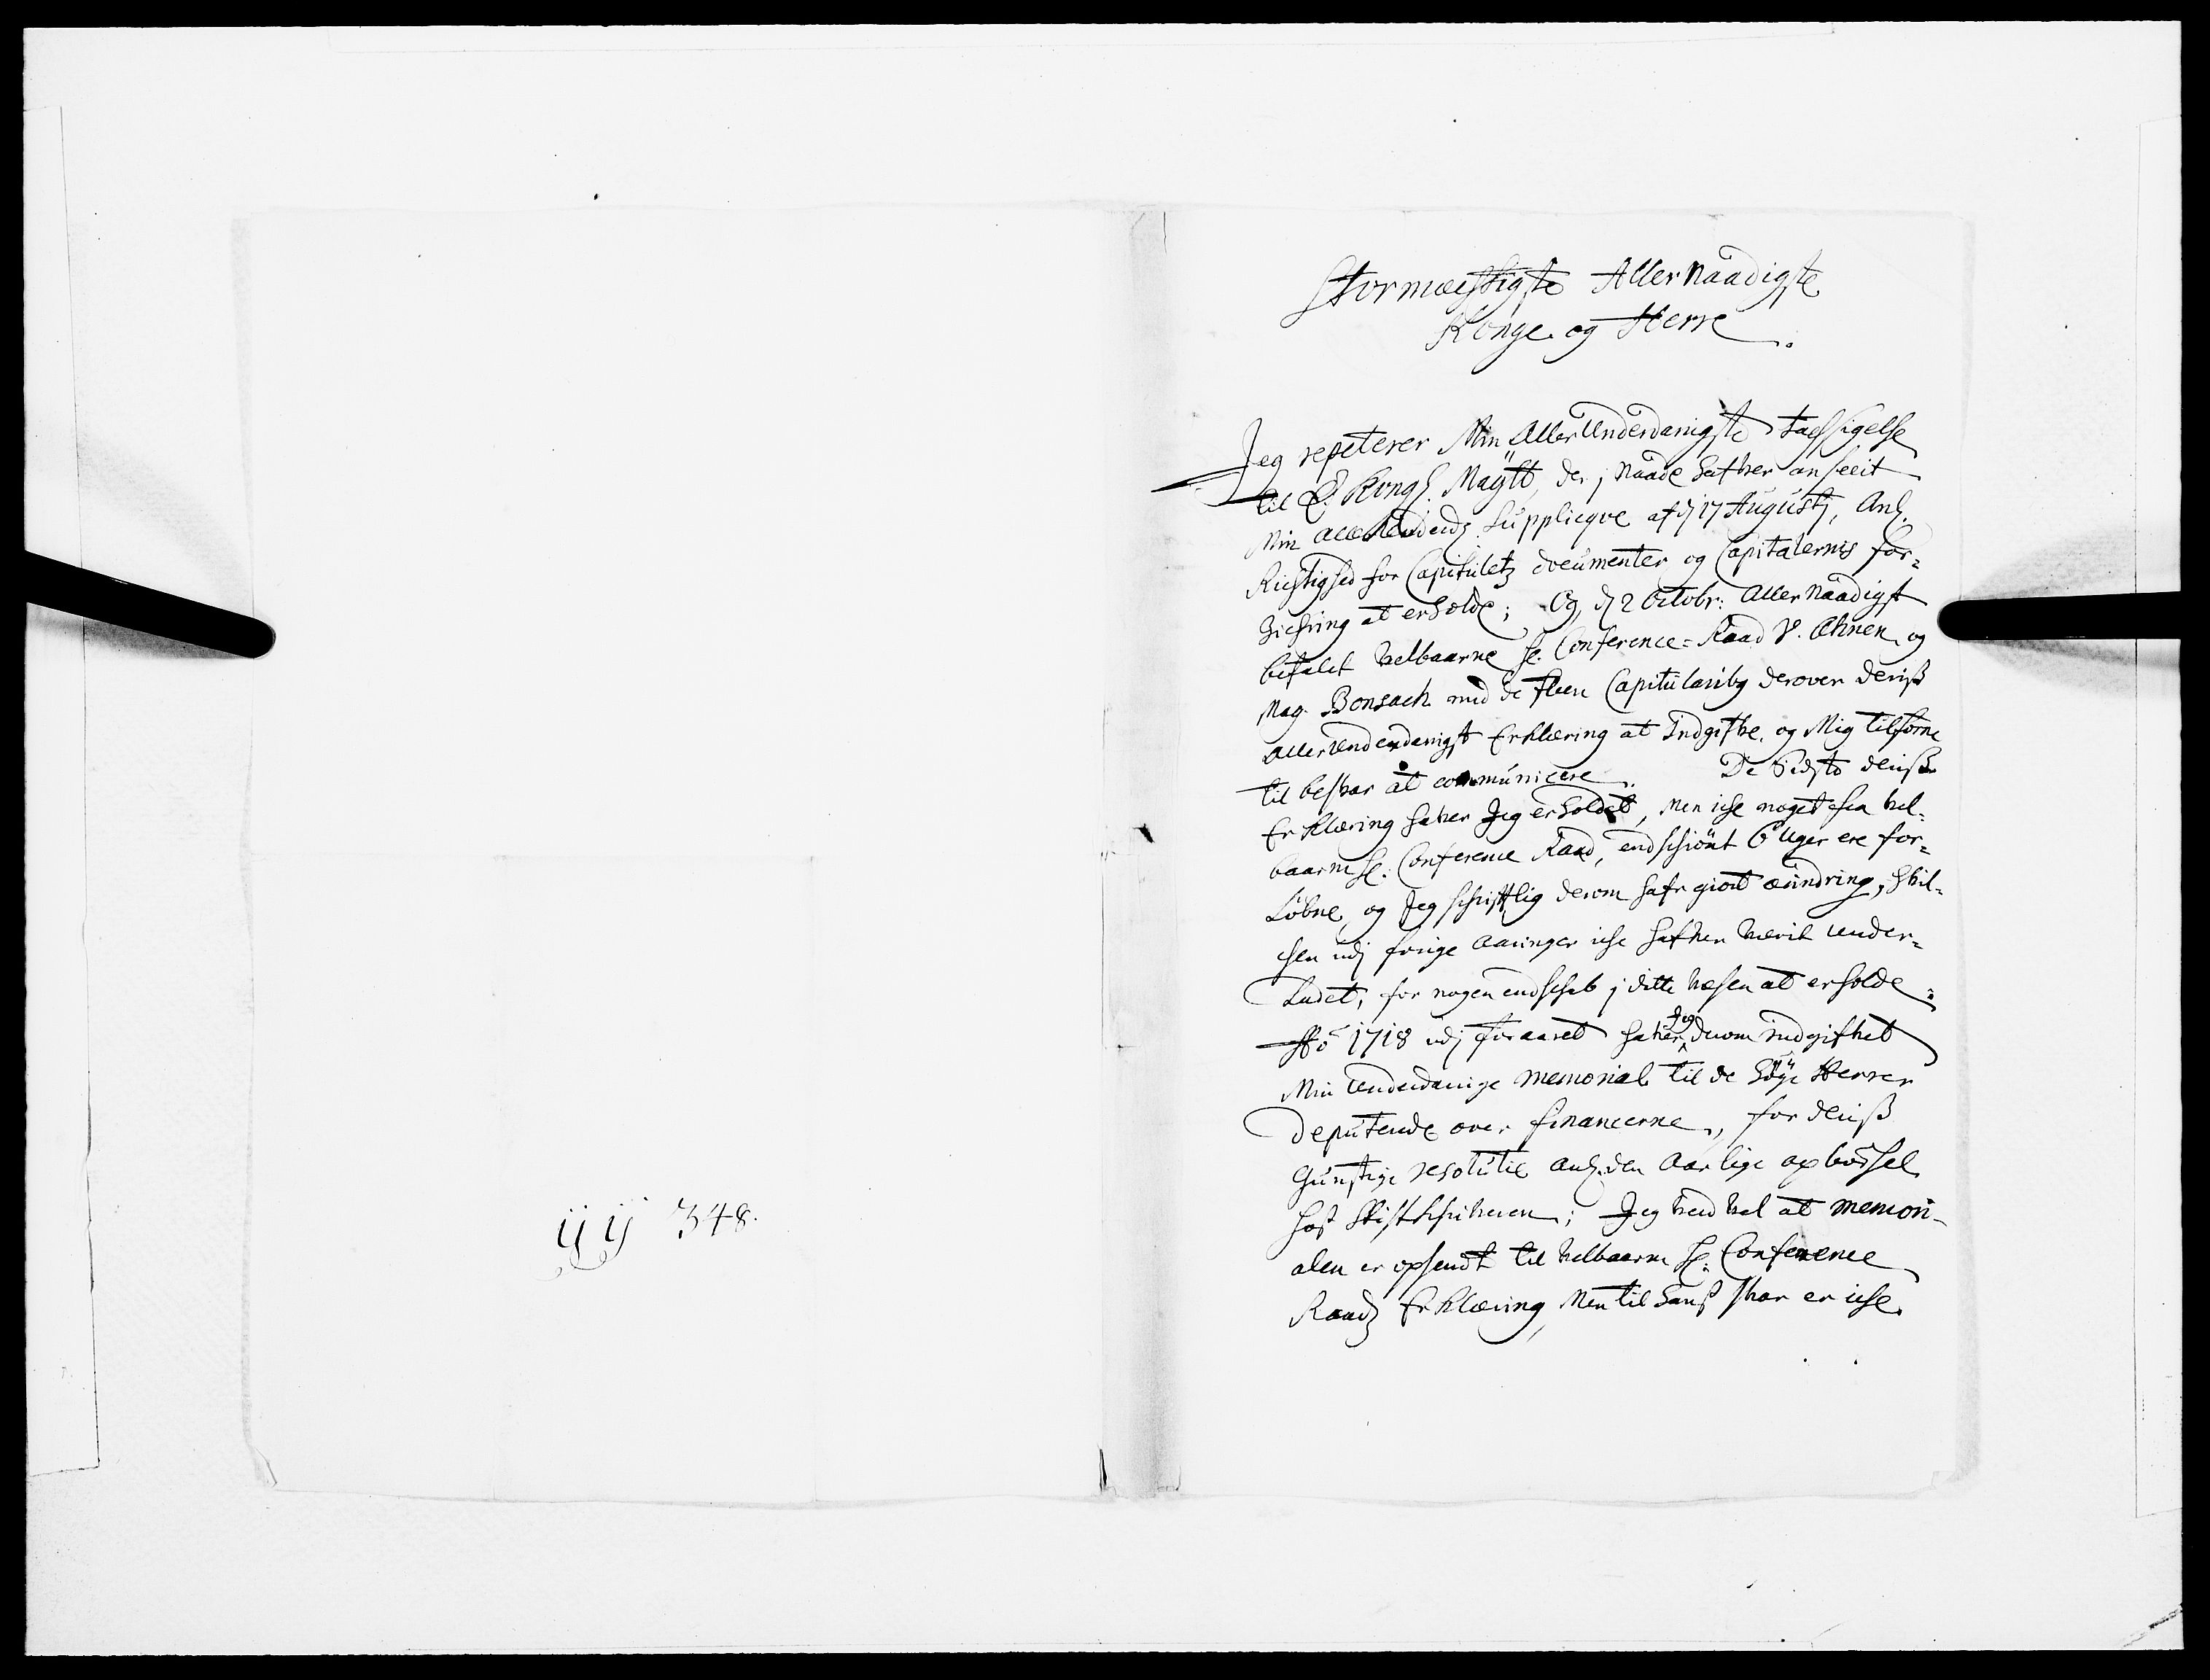 ÿÿ 348.
Stormægtigste Allernaadigste
Konge og Herre.
Jeg repeterer Min Allerunderdanigste tacksigelse
til E. Kongl. Maÿtt, der i Naade hafver anseeit
Min allerunderd. Supplicqve af d 17 Augustj, Anl.
Richtighed for Capitulets documenter og Capitalernis for=
Sichring at erholde; Og d 2 Octobr: Allernaadigst
befalet Velbaarne Hr. Conference=Raad V. Ahnen og
Mag. Borsach med de flere Capitularib9 derover deriß
allerunderdanigst Erklæring at Indgifve, og Mig tilforne
til besvar at communicere. De Sidste deriß
Erklæring haver Jeg erholdet, Men iche noget fra Vel=
baarne Hr. Conference Raad, endschiönt 6 Uger ere for=
Löbne, og Jeg schrifftlig derom hafr giort erindring, hvil=
chen udj forige aaringer iche hafver værit under=
Ladet, for nogen endschab j dette Væsen at erholde.
Ao 1718 udj foraaret haver Jeg derom indgifvet
Min underdanige memorial til de Höÿe Herrer
Deputerede over financerne, for deriß
Gunstige resolutie anl. den Aarlige opbörsel
hoß Stiftschriveren; Jeg veed vel at memori-
alen er opsendt til Velbaarne Hr. Conference
Raads Erklæring, Men til hanß svar er iche